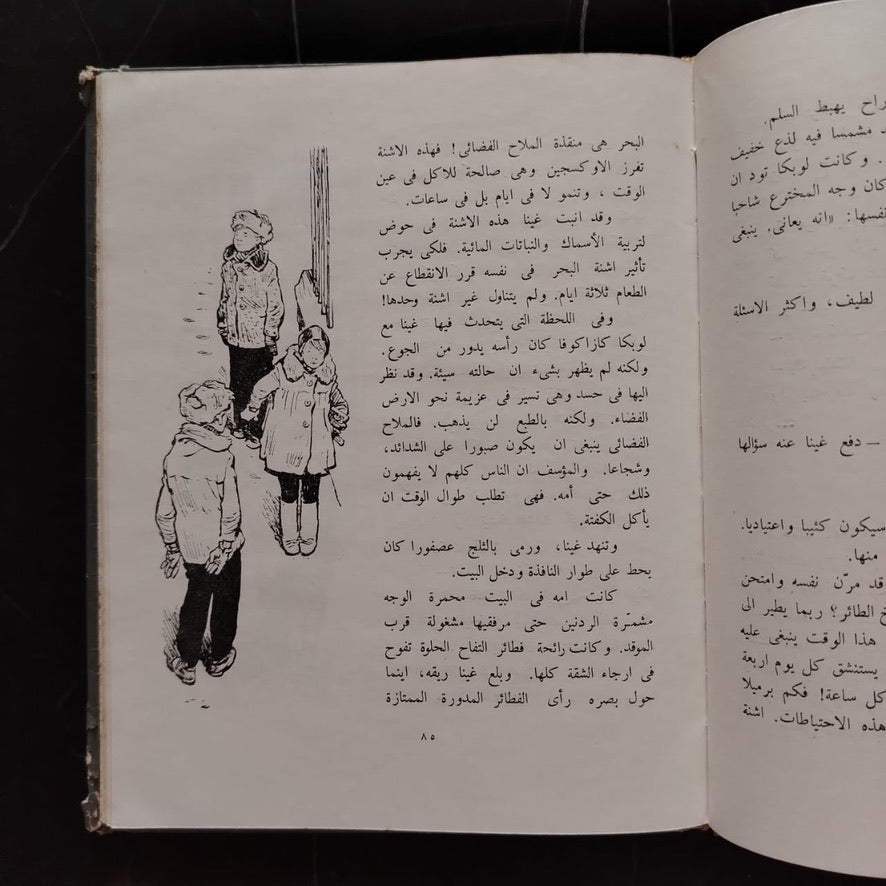 راح يهبط السلم.
مشمسا فيه لذع خفيف
. وكانت لوبكا تود ان
كان وجه المخترع شاحبا
نفسها: «انه يعانى. ينبغى
لطيف، واكثر الاسئلة
— دفع غينا عنه سؤالها
سيكون كئيبا واعتياديا.
منها.
قد مرّن نفسه وامتحن
الطائر؟ ربما يطير الى
هذا الوقت ينبغى عليه
يستنشق كل يوم اربعة
كل ساعة! فكم برميلا
هذه الاحتياطات. اشنة
البحر هى منقذة الملاح الفضائى! فهذه الاشنة
تفرز الاوكسجين وهى صالحة للاكل فى عين
الوقت ، وتنمو لا فى ايام بل فى ساعات.
وقد انبت غينا هذه الاشنة فى حوض
لتربية الأسماك والنباتات المائية. فلكى يجرب
تأثير اشنة البحر فى نفسه قرر الانقطاع عن
الطعام ثلاثة ايام. ولم يتناول غير اشنة وحدها!
وفى اللحظة التى يتحدث فيها غينا مع
لوبكا كازاكوفا كان رأسه يدور من الجوع.
ولكنه لم يظهر بشىء ان حالته سيئة. وقد نظر
اليها فى حسد وهى تسير فى عزيمة نحو الارض
الفضاء. ولكنه بالطبع لن يذهب. فالملاح
الفضائى ينبغى ان يكون صبورا على الشدائد،
وشجاعا. والمؤسف ان الناس كلهم لا يفهمون
ذلك حتى أمه. فهى تطلب طوال الوقت ان
يأكل الكفتة.
وتنهد غينا، ورمى بالثلج عصفورا كان
يحط على طوار النافذة ودخل البيت.
كانت امه فى البيت محمرة الوجه
مشمّرة الردنين حتى مرفقيها مشغولة قرب
الموقد. وكانت رائحة فطائر التفاح الحلوة تفوح
فى ارجاء الشقة كلها. وبلع غينا ريقه، اينما
حول بصره رأى الفطائر المدورة الممتازة
٨٥